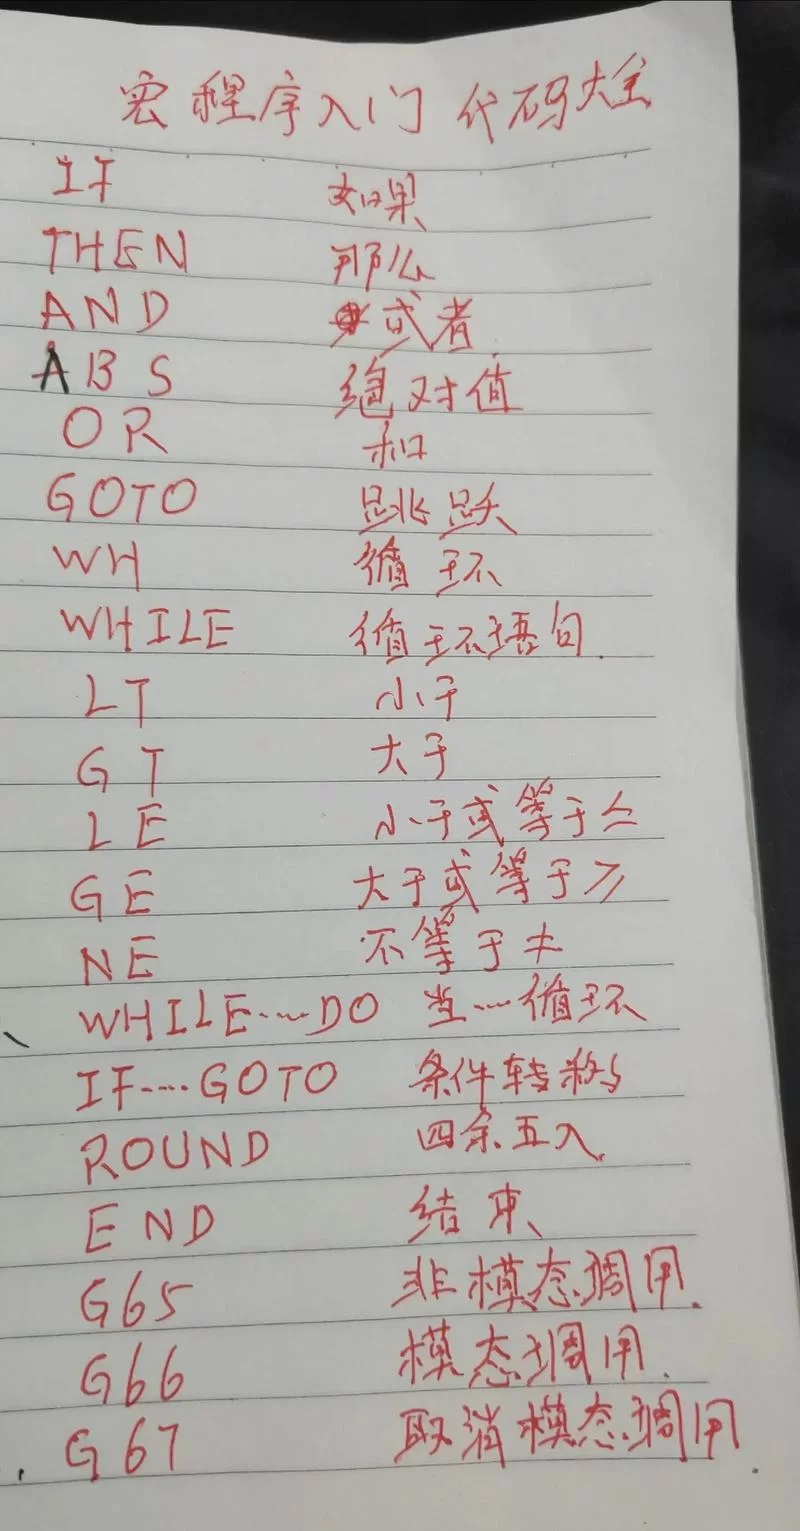 宏程序入门 代码大全
IF 如果
THEN 那么
AND 或者
ABS 绝对值
OR 和
GOTO 跳跃
WH 循环
WHILE 循环语句.
LT 小于
GT 大于
LE 小于或等于≤
GE 大于或等于≥
NE 不等于≠
、WHILE……DO 当…循环
IF……GOTO 条件转移
ROUND 四舍五入
END 结束
G65 非模态调用.
G66 模态调用.
G67 取消模态调用.